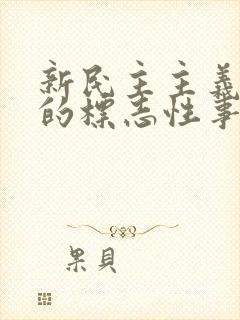 新民主主義
的標志性事
果貝